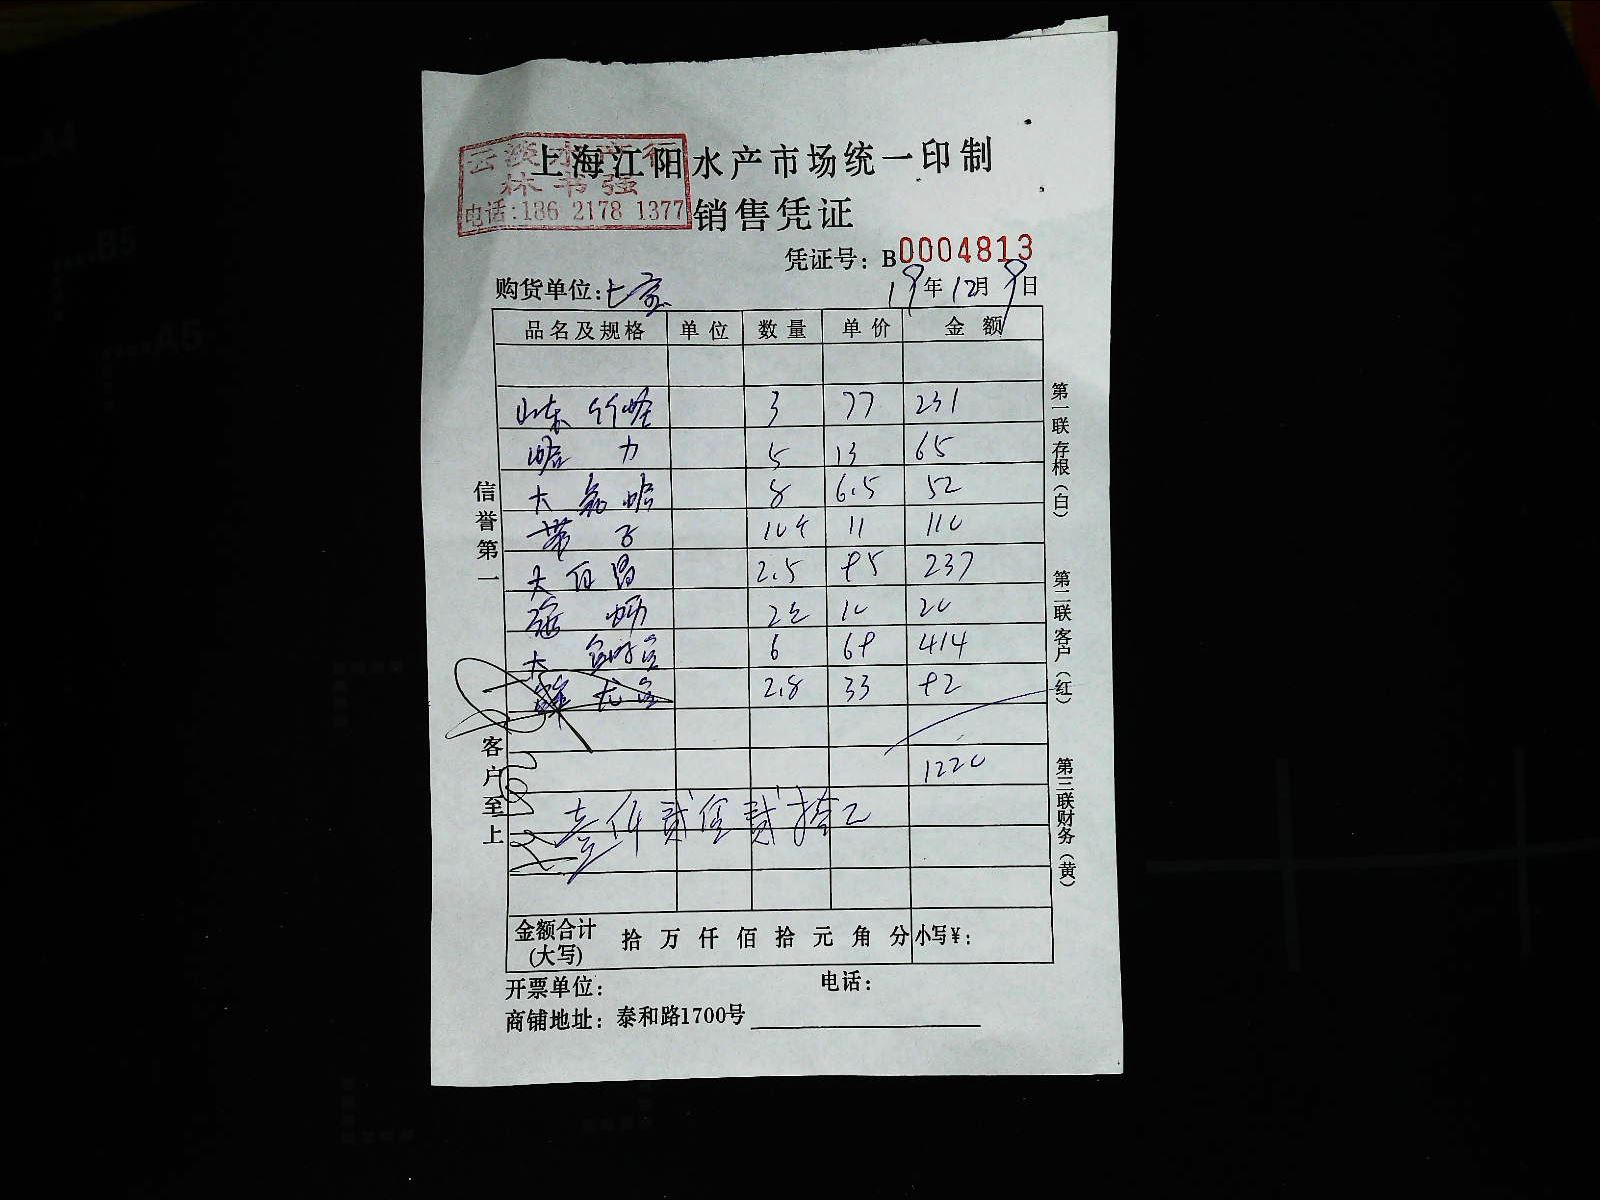 上海江阳水产市场统一印制
云淡水产行
林书强
电话:136 2178 1377
销售凭证
凭证号: B0004813
购货单位:七宝
19年12月9日
品名及规格 单位 数量 单价 金额
山东竹蛏 3 77 231
蛤力 5 13 65
大 蛤 8 6.5 52
带子 10个 11 110
大白昌 2.5 95 237
2 10 20
大 6 69 414
鲜尤鱼 2.8 33 92
1220
壹仟贰佰贰拾元
金额合计(大写) 拾 万 仟 佰 拾 元 角 分 小写¥:
开票单位: 电话:
商铺地址: 泰和路1700号
信誉第一
客户至上
第一联存根(白)
第二联客户(红)
第三联财务(黄)